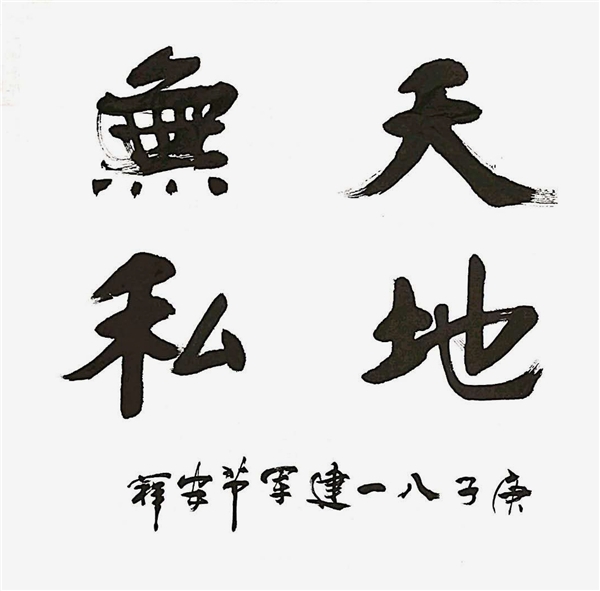 天地
無私
庚子八一建军节安祥